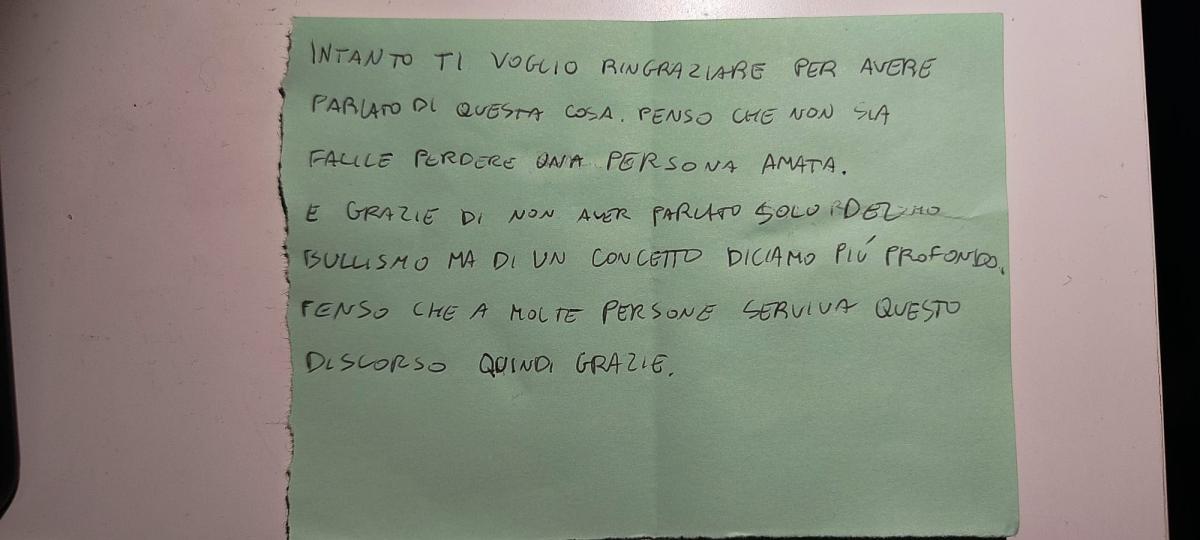 INTANTO TI VOGLIO RINGRAZIARE PER AVERE
PARLATO DI QUESTA COSA. PENSO CHE NON SIA
FACILE PERDERE UNA PERSONA AMATA.
E GRAZIE DI NON AVER PARLATO SOLO DEL
BULLISMO MA DI UN CONCETTO DICIAMO PIÚ PROFONDO.
PENSO CHE A MOLTE PERSONE SERVIVA QUESTO
DISCORSO QUINDI GRAZIE.